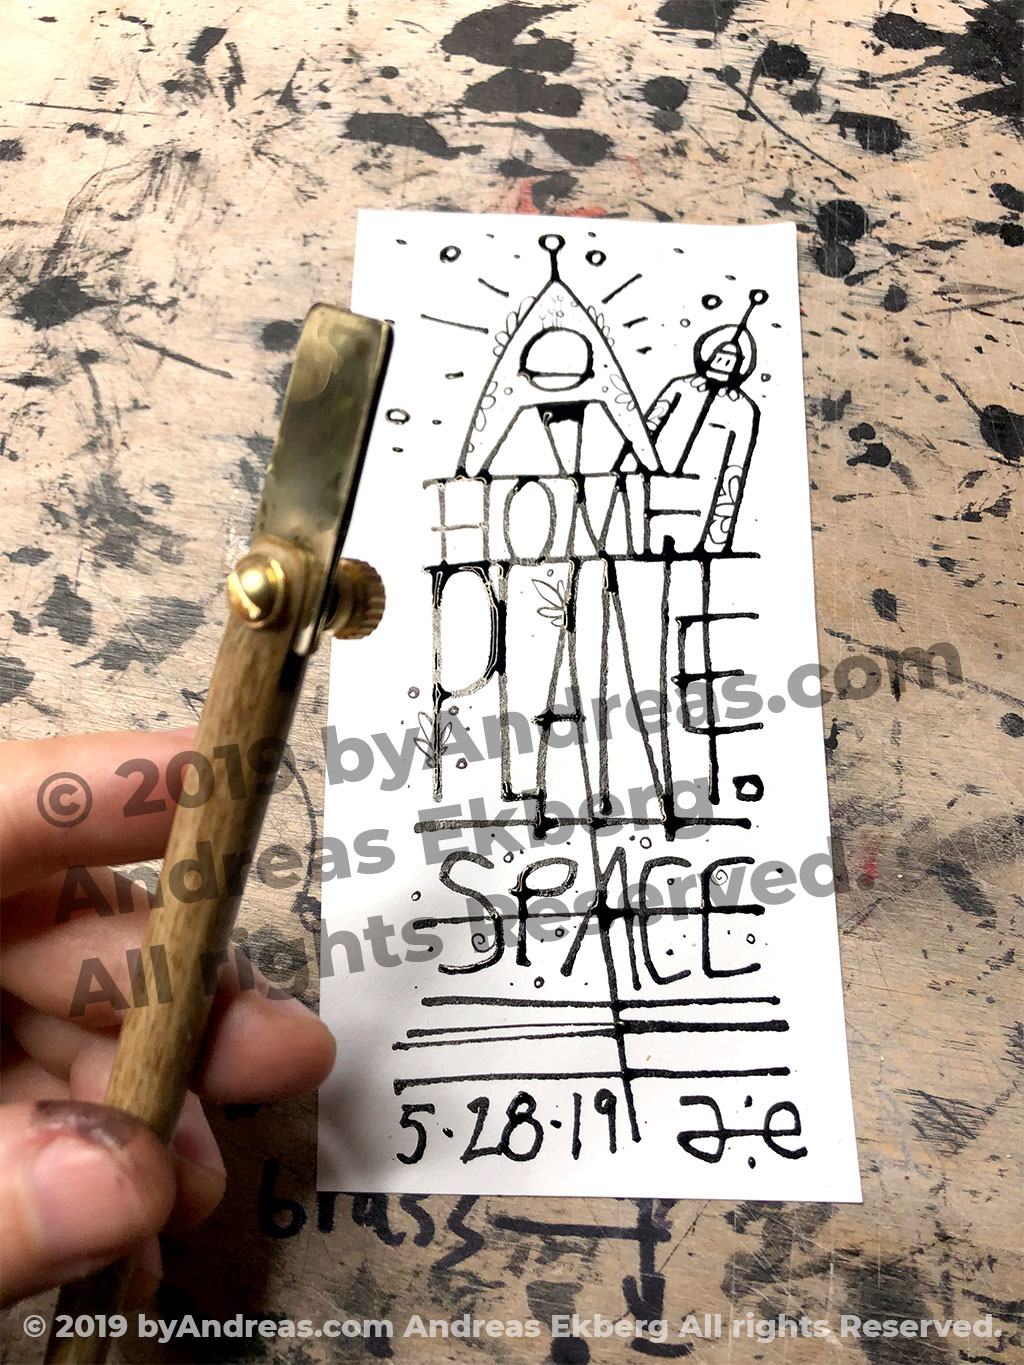 HOME
PLANE.
SPACE
5·28·19 a:e
brass
© 2019 byAndreas.com
Andreas Ekberg
All rights Reserved.
© 2019 byAndreas.com Andreas Ekberg All rights Reserved.